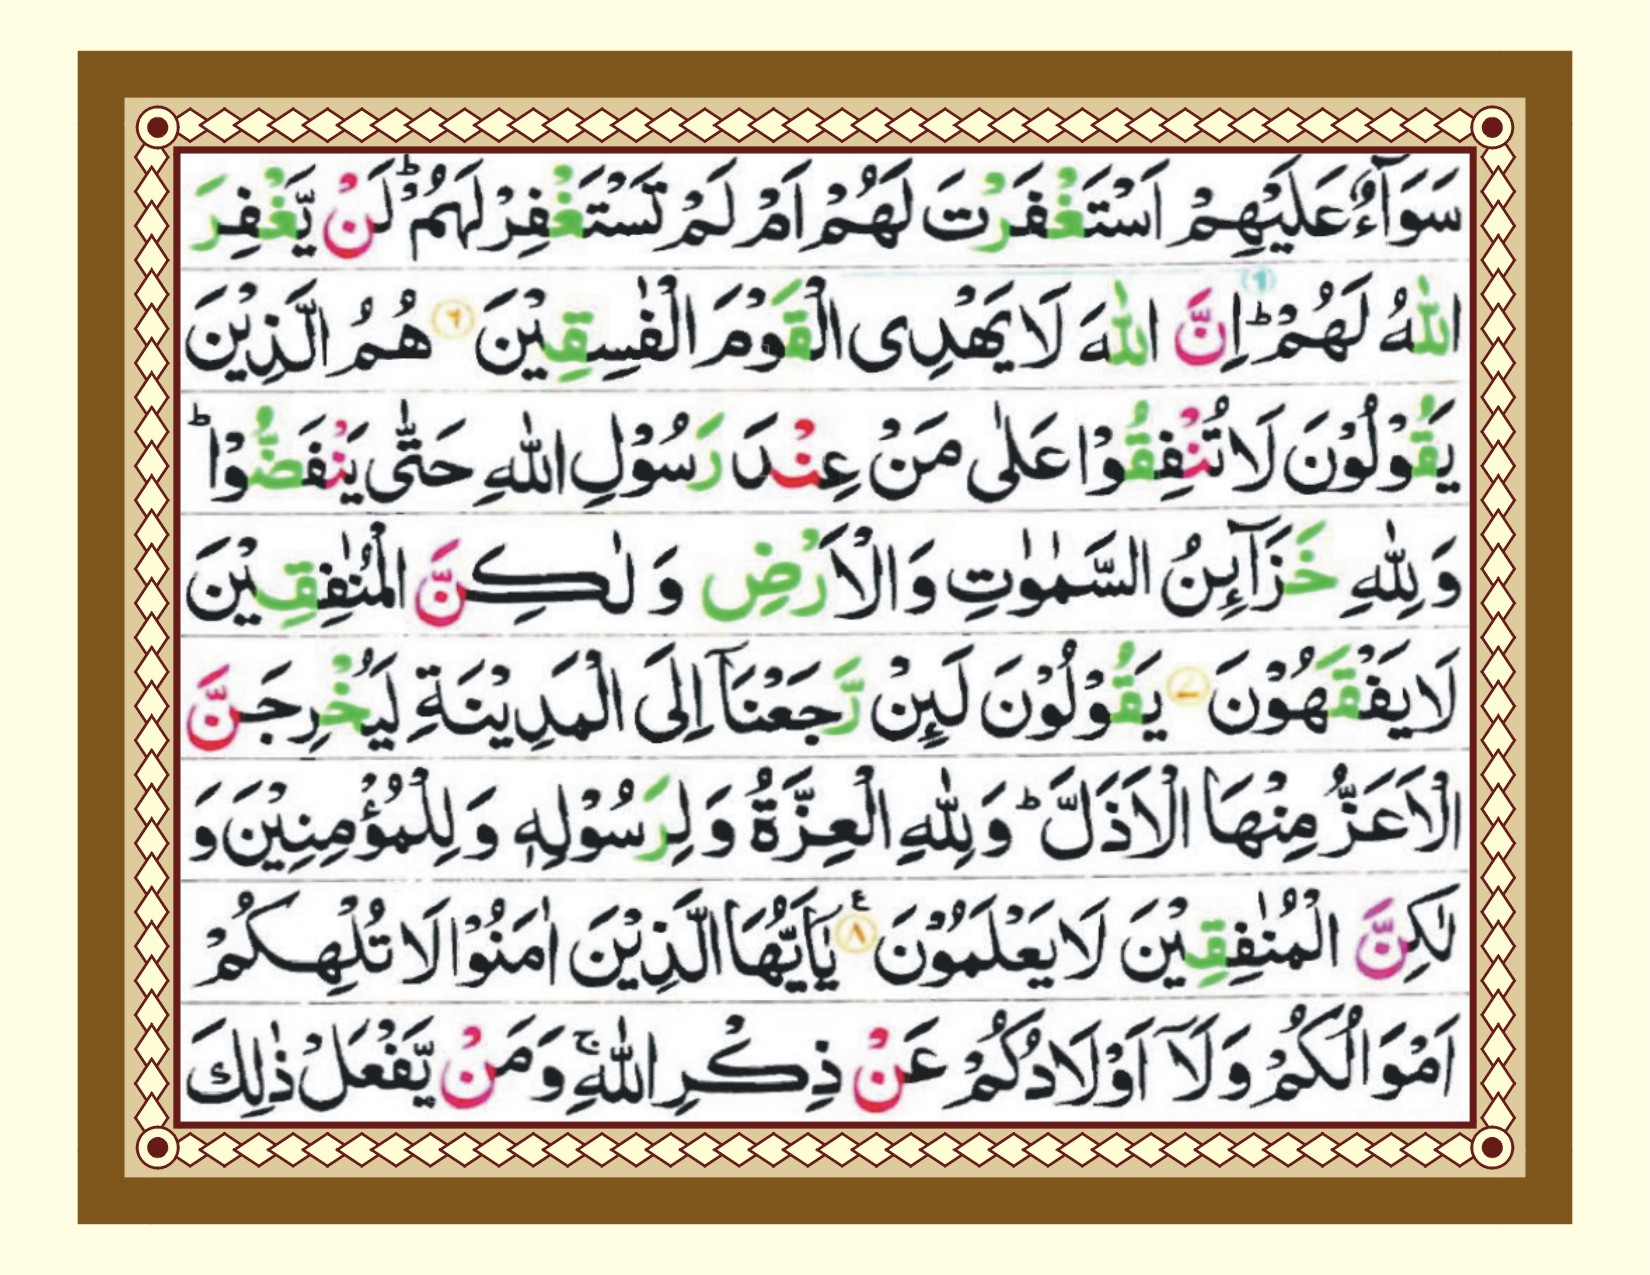 سَوَآءٌ عَلَيْهِمْ اَسْتَغْفَرْتَ لَهُمْ اَمْ لَمْ تَسْتَغْفِرْ لَهُمْ ؕ لَنْ يَّغْفِرَ
اللّٰهُ لَهُمْ ؕ اِنَّ اللّٰهَ لَا يَهْدِى الْقَوْمَ الْفٰسِقِيْنَ ۶ هُمُ الَّذِيْنَ
يَقُوْلُوْنَ لَا تُنْفِقُوْا عَلٰى مَنْ عِنْدَ رَسُوْلِ اللّٰهِ حَتّٰى يَنْفَضُّوْا ؕ
وَ لِلّٰهِ خَزَآئِنُ السَّمٰوٰتِ وَ الْاَرْضِ وَ لٰكِنَّ الْمُنٰفِقِيْنَ
لَا يَفْقَهُوْنَ ۷ يَقُوْلُوْنَ لَئِنْ رَّجَعْنَاۤ اِلَى الْمَدِيْنَةِ لَيُخْرِجَنَّ
الْاَعَزُّ مِنْهَا الْاَذَلَّ ؕ وَ لِلّٰهِ الْعِزَّةُ وَ لِرَسُوْلِهٖ وَ لِلْمُؤْمِنِيْنَ وَ
لٰكِنَّ الْمُنٰفِقِيْنَ لَا يَعْلَمُوْنَ ۸ ع يٰۤاَيُّهَا الَّذِيْنَ اٰمَنُوْا لَا تُلْهِكُمْ
اَمْوَالُكُمْ وَ لَاۤ اَوْلَادُكُمْ عَنْ ذِكْرِ اللّٰهِ ۚ وَ مَنْ يَّفْعَلْ ذٰلِكَ